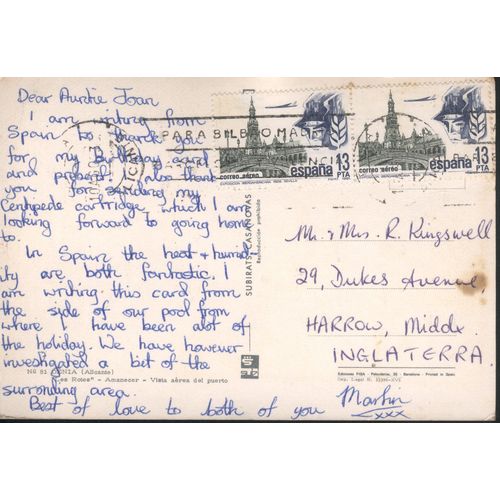 Dear Auntie Joan
I am writing from
Spain to thank you
for my birthday card
and present. Also thank
you for sending my
Centipede cartridge which I am
looking forward to going home
to.
In Spain the heat & humid-
ity are both fantastic. I
am writing this card from
the side of our pool from
where I have been alot of
the holiday. We have however
investigated a bit of the
surronding area.
Best of love to both of you
Martin
xxx
Nº 81 DENIA (Alicante)
"Les Rotes" - Amanecer - Vista aérea del puerto
SUBIRATS CASANOVAS
Reproducción prohibida
PARA BILBAO MAD
correo aéreo
españa
13
PTA
correo aéreo
españa
13
PTA
Mr. & Mrs. R. Kingswell
29, Dukes Avenue,
HARROW, Middx.
INGLATERRA.
Printed in Spain